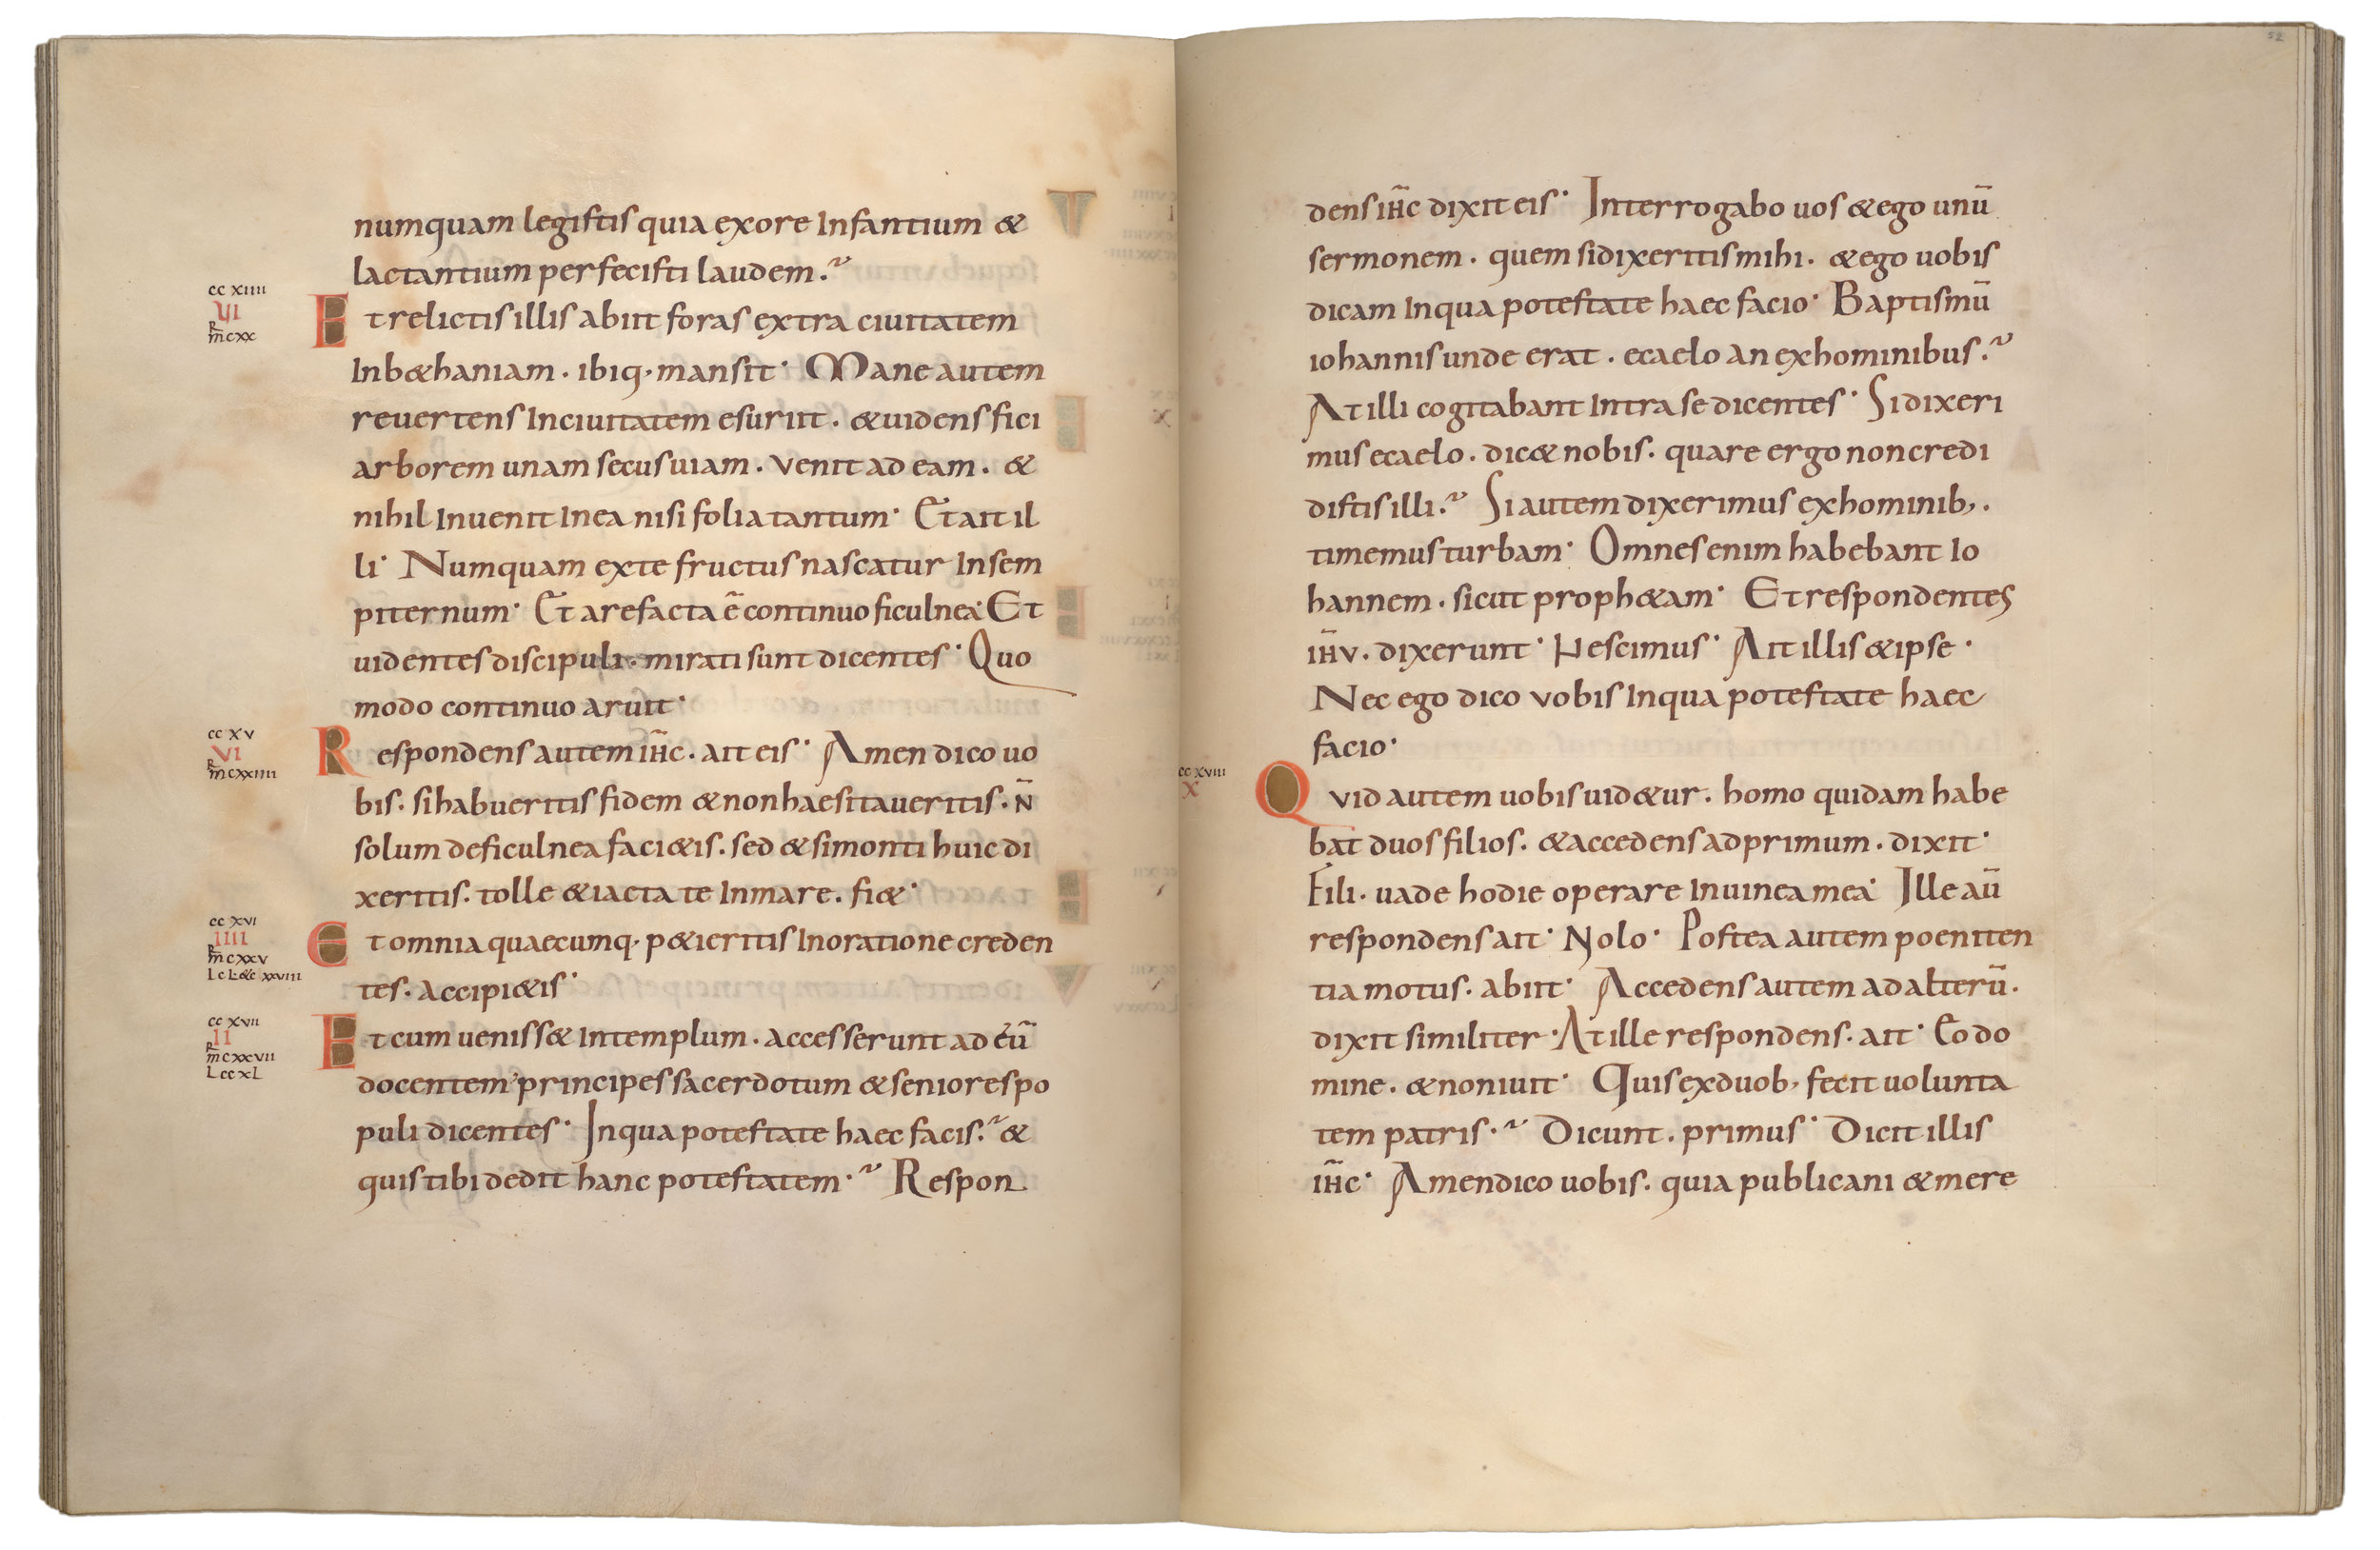 numquam legistis quia exore Infantium &
lactantium perfecisti laudem.
cc xiiii
VI
R
m cxx
Et relictis illis abiit foras extra ciuitatem
Inb&haniam. ibiq. mansit. Mane autem
reuertens Inciuitatem esuriit. &uidens fici
arborem unam secus uiam. venit ad eam. &
nihil Inuenit Inea nisi folia tantum. Et ait il
li. Numquam exte fructus nascatur Insem
piternum. Et arefacta ē continuo ficulnea. Et
uidentes discipuli. mirati sunt dicentes. Quo
modo continuo aruit.
cc xv
VI
R
m cxxiiii
Respondens autem ih̄c. ait eis. Amen dico uo
bis. si habueritis fidem &non haesitaueritis. n̄
solum deficulnea faci&is. sed &si monti huic di
xeritis. tolle &iacta te Inmare. fi&.
cc xvi
IIII
R
m cxxv
L cL&c xxviii
Et omnia quaecumq. p&ieritis Inoratione creden
tes. accipi&is.
cc xvii
II
R
m cxxvii
L ccxL
Et cum ueniss& Intemplum. accesserunt ad eū
docentem principes sacerdotum &seniores po
puli dicentes. Inqua potestate haec facis. &
quis tibi dedit hanc potestatem. Respon
52
dens ih̄c dixit eis. Interrogabo uos &ego unū
sermonem. quem si dixeritis mihi. &ego uobis
dicam Inqua potestate haec facio. Baptismū
iohannis unde erat. ecaelo an exhominibus.
At illi cogitabant Intra se dicentes. Si dixeri
mus ecaelo. dic& nobis. quare ergo non credi
distis illi. Si autem dixerimus exhominib,.
timemus turbam. Omnes enim habebant Io
hannem. sicut proph&am. Et respondentes
ih̄v. dixerunt. Nescimus. Ait illis &ipse.
Nec ego dico vobis Inqua potestate haec
facio.
cc xviii
X
Qvid autem uobis uid&ur. homo quidam habe
bat duos filios. &accedens ad primum. dixit.
Fili. uade hodie operare Inuinea mea. Ille aū
respondens ait. Nolo. Postea autem poeniten
tia motus. abiit. Accedens autem ad alterū.
dixit similiter. At ille respondens. ait. Eo do
mine. &non iuit. Quis exduob, fecit uolunta
tem patris. Dicunt. primus. Dicit illis
ih̄c. Amen dico uobis. quia publicani &mere